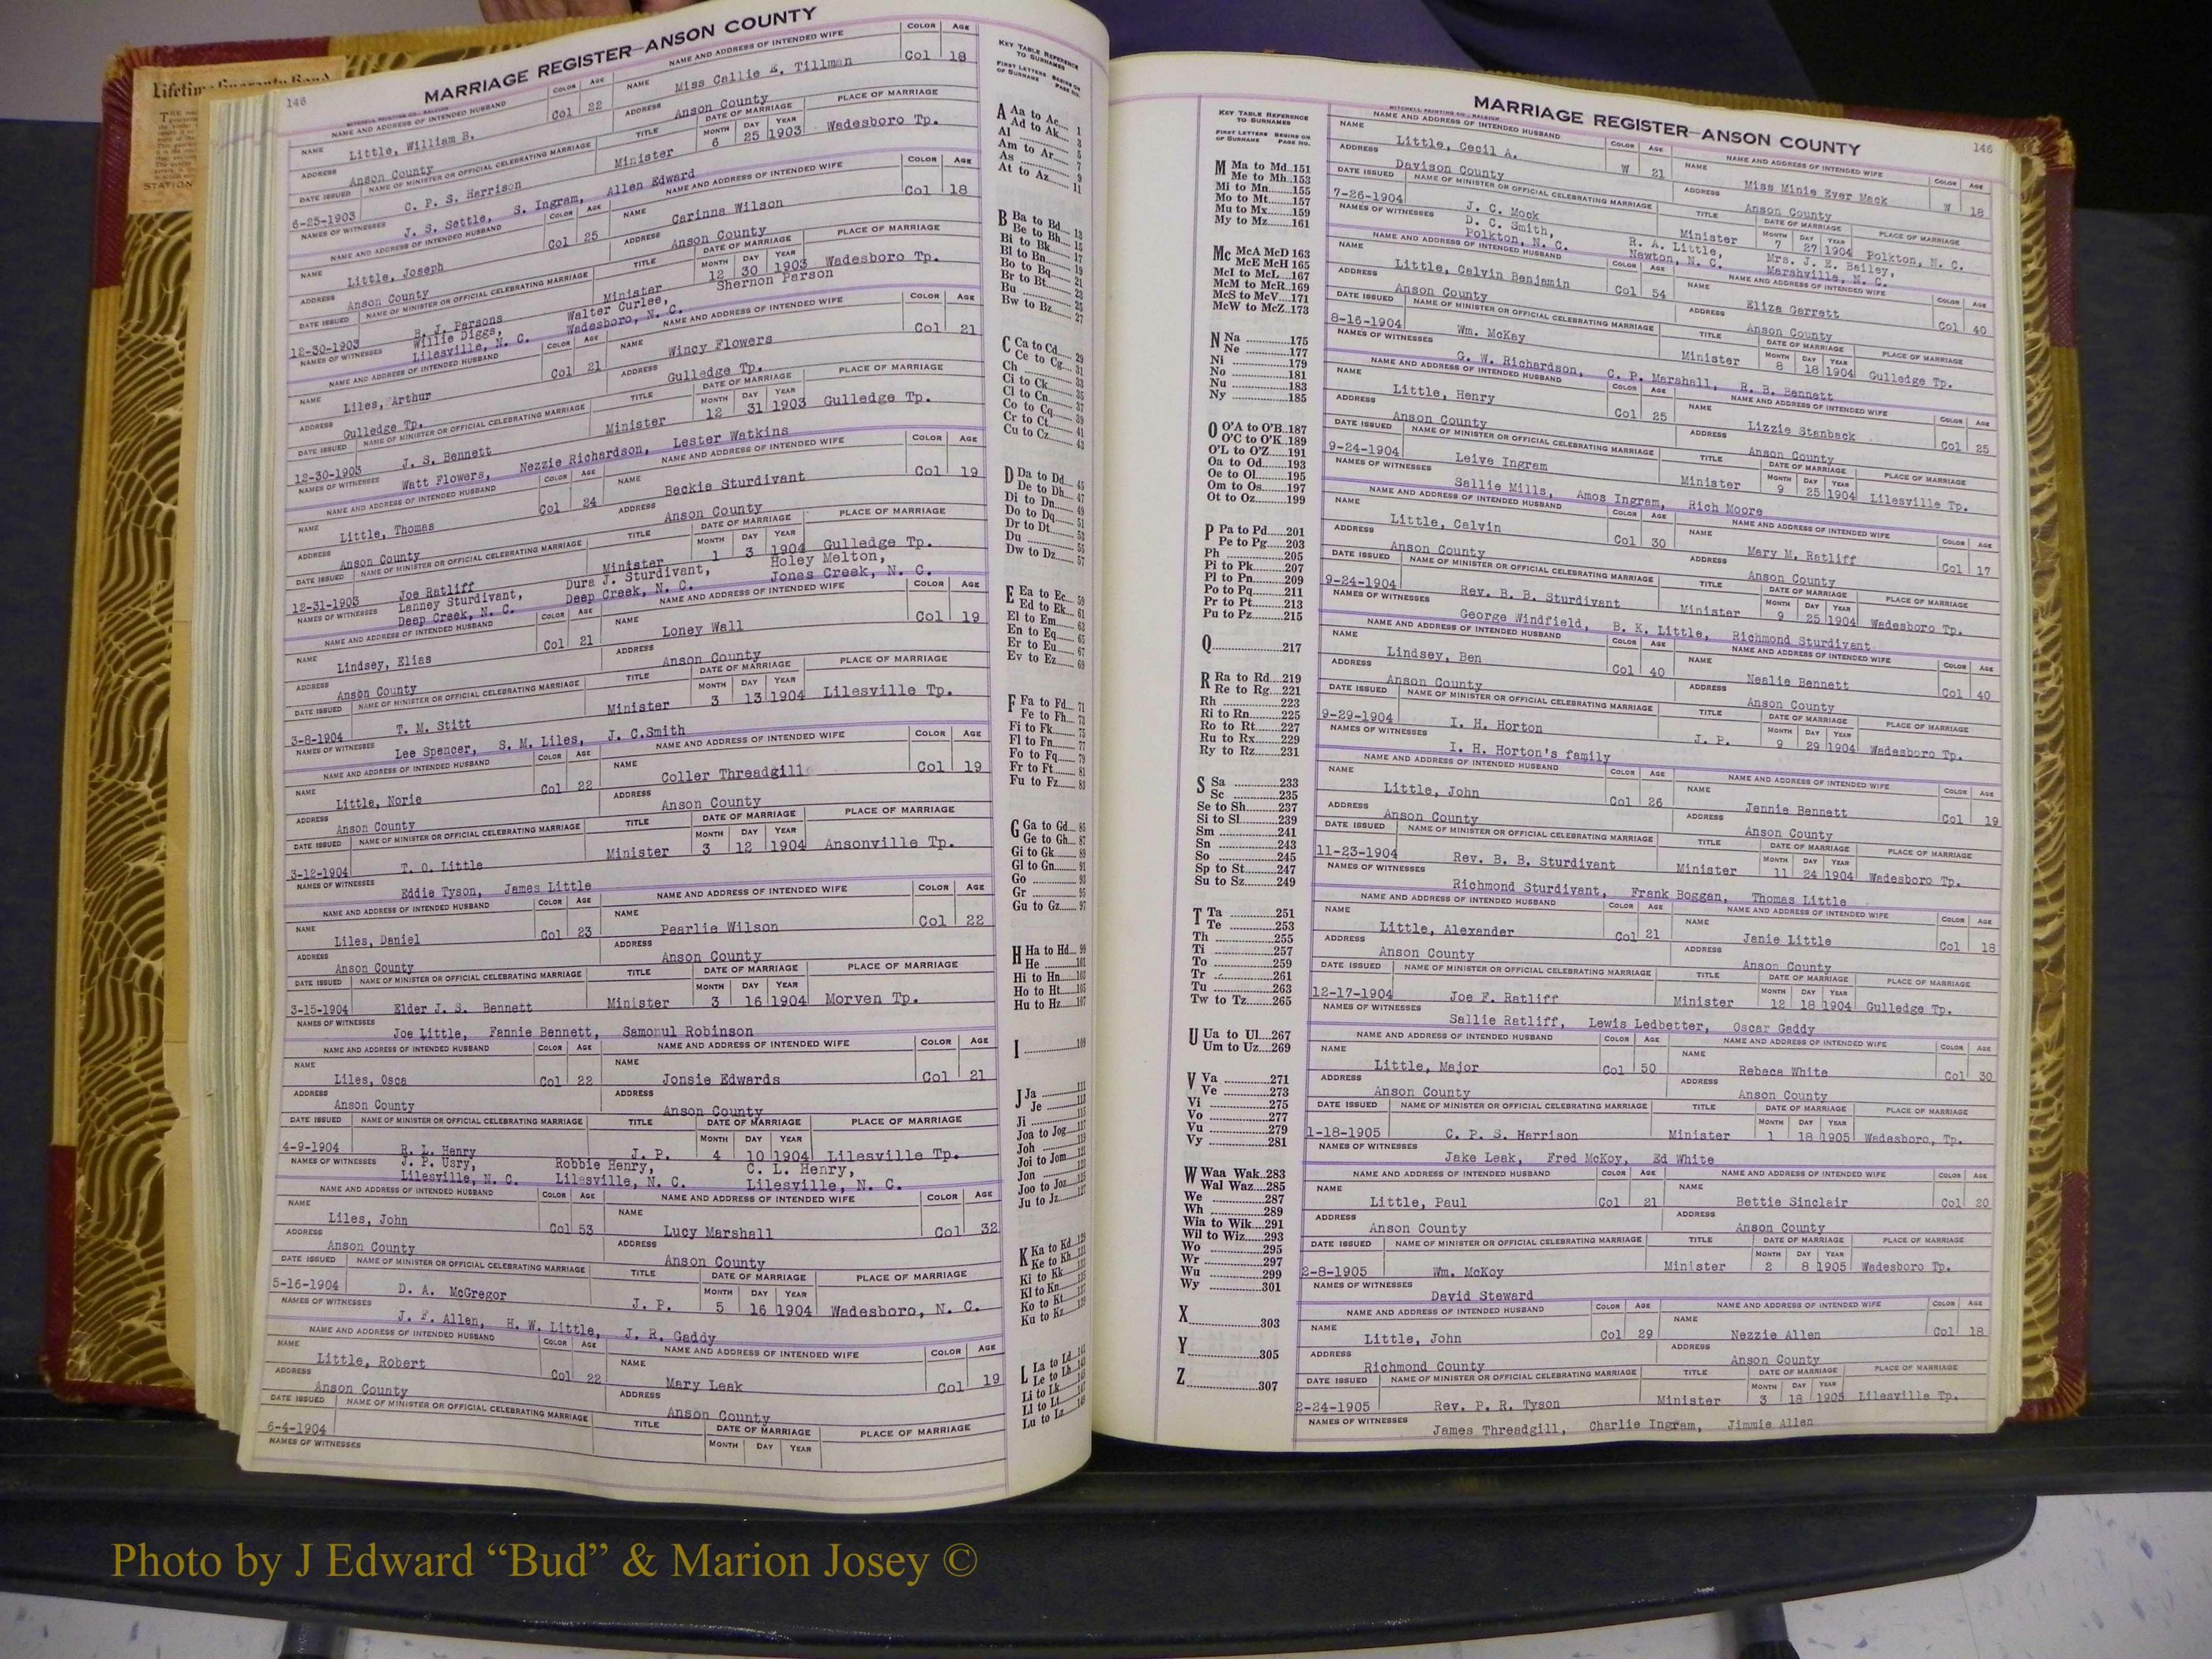 Lifetime Guaranty Bond
STATION
146
MARRIAGE REGISTER—ANSON COUNTY
MITCHELL PRINTING CO., RALEIGH
NAME AND ADDRESS OF INTENDED HUSBAND COLOR AGE NAME AND ADDRESS OF INTENDED WIFE COLOR AGE
NAME Little, William B. Col 22 NAME Miss Callie E. Tillman Col 18
ADDRESS Anson County ADDRESS Anson County
DATE ISSUED NAME OF MINISTER OR OFFICIAL CELEBRATING MARRIAGE TITLE DATE OF MARRIAGE PLACE OF MARRIAGE
MONTH DAY YEAR
6-25-1903 C. P. S. Harrison Minister 6 25 1903 Wadesboro Tp.
NAMES OF WITNESSES J. S. Settle, S. Ingram, Allen Edward
NAME AND ADDRESS OF INTENDED HUSBAND COLOR AGE NAME AND ADDRESS OF INTENDED WIFE COLOR AGE
NAME Little, Joseph Col 25 NAME Carinna Wilson Col 18
ADDRESS Anson County ADDRESS Anson County
DATE ISSUED NAME OF MINISTER OR OFFICIAL CELEBRATING MARRIAGE TITLE DATE OF MARRIAGE PLACE OF MARRIAGE
MONTH DAY YEAR
12-30-1903 B. J. Parsons Minister 12 30 1903 Wadesboro Tp.
NAMES OF WITNESSES Willie Diggs, Walter Curlee, Shernon Parson
Lilesville, N. C. Wadesboro, N. C.
NAME AND ADDRESS OF INTENDED HUSBAND COLOR AGE NAME AND ADDRESS OF INTENDED WIFE COLOR AGE
NAME Liles, Arthur Col 21 NAME Wincy Flowers Col 21
ADDRESS Gulledge Tp. ADDRESS Gulledge Tp.
DATE ISSUED NAME OF MINISTER OR OFFICIAL CELEBRATING MARRIAGE TITLE DATE OF MARRIAGE PLACE OF MARRIAGE
MONTH DAY YEAR
12-30-1903 J. S. Bennett Minister 12 31 1903 Gulledge Tp.
NAMES OF WITNESSES Watt Flowers, Nezzie Richardson, Lester Watkins
NAME AND ADDRESS OF INTENDED HUSBAND COLOR AGE NAME AND ADDRESS OF INTENDED WIFE COLOR AGE
NAME Little, Thomas Col 24 NAME Beckie Sturdivant Col 19
ADDRESS Anson County ADDRESS Anson County
DATE ISSUED NAME OF MINISTER OR OFFICIAL CELEBRATING MARRIAGE TITLE DATE OF MARRIAGE PLACE OF MARRIAGE
MONTH DAY YEAR
12-31-1903 Joe Ratliff Minister 1 3 1904 Gulledge Tp.
NAMES OF WITNESSES Lanney Sturdivant, Dura J. Sturdivant, Holey Melton,
Deep Creek, N. C. Deep Creek, N. C. Jones Creek, N. C.
NAME AND ADDRESS OF INTENDED HUSBAND COLOR AGE NAME AND ADDRESS OF INTENDED WIFE COLOR AGE
NAME Lindsey, Elias Col 21 NAME Loney Wall Col 19
ADDRESS Anson County ADDRESS Anson County
DATE ISSUED NAME OF MINISTER OR OFFICIAL CELEBRATING MARRIAGE TITLE DATE OF MARRIAGE PLACE OF MARRIAGE
MONTH DAY YEAR
3-8-1904 T. M. Stitt Minister 3 13 1904 Lilesville Tp.
NAMES OF WITNESSES Lee Spencer, S. M. Liles, J. C.Smith
NAME AND ADDRESS OF INTENDED HUSBAND COLOR AGE NAME AND ADDRESS OF INTENDED WIFE COLOR AGE
NAME Little, Norie Col 22 NAME Coller Threadgill Col 19
ADDRESS Anson County ADDRESS Anson County
DATE ISSUED NAME OF MINISTER OR OFFICIAL CELEBRATING MARRIAGE TITLE DATE OF MARRIAGE PLACE OF MARRIAGE
MONTH DAY YEAR
3-12-1904 T. O. Little Minister 3 12 1904 Ansonville Tp.
NAMES OF WITNESSES Eddie Tyson, James Little
NAME AND ADDRESS OF INTENDED HUSBAND COLOR AGE NAME AND ADDRESS OF INTENDED WIFE COLOR AGE
NAME Liles, Daniel Col 23 NAME Pearlie Wilson Col 22
ADDRESS Anson County ADDRESS Anson County
DATE ISSUED NAME OF MINISTER OR OFFICIAL CELEBRATING MARRIAGE TITLE DATE OF MARRIAGE PLACE OF MARRIAGE
MONTH DAY YEAR
3-15-1904 Elder J. S. Bennett Minister 3 16 1904 Morven Tp.
NAMES OF WITNESSES Joe Little, Fannie Bennett, Samonul Robinson
NAME AND ADDRESS OF INTENDED HUSBAND COLOR AGE NAME AND ADDRESS OF INTENDED WIFE COLOR AGE
NAME Liles, Osca Col 22 NAME Jonsie Edwards Col 21
ADDRESS Anson County ADDRESS Anson County
DATE ISSUED NAME OF MINISTER OR OFFICIAL CELEBRATING MARRIAGE TITLE DATE OF MARRIAGE PLACE OF MARRIAGE
MONTH DAY YEAR
4-9-1904 R. L. Henry J. P. 4 10 1904 Lilesville Tp.
NAMES OF WITNESSES J. P. Usry, Robbie Henry, C. L. Henry,
Lilesville, N. C. Lilesville, N. C. Lilesville, N. C.
NAME AND ADDRESS OF INTENDED HUSBAND COLOR AGE NAME AND ADDRESS OF INTENDED WIFE COLOR AGE
NAME Liles, John Col 53 NAME Lucy Marshall Col 32
ADDRESS Anson County ADDRESS Anson County
DATE ISSUED NAME OF MINISTER OR OFFICIAL CELEBRATING MARRIAGE TITLE DATE OF MARRIAGE PLACE OF MARRIAGE
MONTH DAY YEAR
5-16-1904 D. A. McGregor J. P. 5 16 1904 Wadesboro, N. C.
NAMES OF WITNESSES J. F. Allen, H. W. Little, J. R. Gaddy
NAME AND ADDRESS OF INTENDED HUSBAND COLOR AGE NAME AND ADDRESS OF INTENDED WIFE COLOR AGE
NAME Little, Robert Col 22 NAME Mary Leak Col 19
ADDRESS Anson County ADDRESS Anson County
DATE ISSUED NAME OF MINISTER OR OFFICIAL CELEBRATING MARRIAGE TITLE DATE OF MARRIAGE PLACE OF MARRIAGE
6-4-1904 MONTH DAY YEAR
NAMES OF WITNESSES
KEY TABLE REFERENCE
TO SURNAMES
FIRST LETTERS BEGINS ON
OF SURNAME PAGE NO.
A Aa to Ac.... 1
Ad to Ak.... 3
Al ........ 5
Am to Ar.... 7
As ........ 9
At to Az.... 11
B Ba to Bd.... 13
Be to Bh.... 15
Bi to Bk.... 17
Bl to Bn.... 19
Bo to Bq.... 21
Br to Bt.... 23
Bu ........ 25
Bw to Bz.... 27
C Ca to Cd.... 29
Ce to Cg.... 31
Ch ........ 33
Ci to Ck.... 35
Cl to Cn.... 37
Co to Cq.... 39
Cr to Ct.... 41
Cu to Cz.... 43
D Da to Dd.... 45
De to Dh.... 47
Di to Dn.... 49
Do to Dq.... 51
Dr to Dt.... 53
Du ........ 55
Dw to Dz.... 57
E Ea to Ec.... 59
Ed to Ek.... 61
El to Em.... 63
En to Eq.... 65
Er to Eu.... 67
Ev to Ez.... 69
F Fa to Fd.... 71
Fe to Fh.... 73
Fi to Fk.... 75
Fl to Fn.... 77
Fo to Fq.... 79
Fr to Ft.... 81
Fu to Fz.... 83
G Ga to Gd.... 85
Ge to Gh.... 87
Gi to Gk.... 89
Gl to Gn.... 91
Go ........ 93
Gr ........ 95
Gu to Gz.... 97
H Ha to Hd.... 99
He ........ 101
Hi to Hn.... 103
Ho to Ht.... 105
Hu to Hz.... 107
I ........ 109
J Ja ........ 111
Je ........ 113
Ji ........ 115
Joa to Jog.... 117
Joh ........ 119
Joi to Jom.... 121
Jon ........ 123
Joo to Joz.... 125
Ju to Jz.... 127
K Ka to Kd.... 129
Ke to Kh.... 131
Ki to Kk....
Kl to Kn....
Ko to Kt....
Ku to Kz....
L La to Ld.... 141
Le to Lh.... 143
Li to Lk.... 145
Ll to Lt.... 147
Lu to Lz.... 149
KEY TABLE REFERENCE
TO SURNAMES
FIRST LETTERS BEGINS ON
OF SURNAME PAGE NO.
M Ma to Md.151
Me to Mh.153
Mi to Mn......155
Mo to Mt......157
Mu to Mx.....159
My to Mz.....161
Mc McA McD 163
McE McH 165
McI to McL...167
McM to McR..169
McS to McV....171
McW to McZ..173
N Na ............175
Ne ............177
Ni ............179
No ............181
Nu ............183
Ny ............185
O O'A to O'B..187
O'C to O'K..189
O'L to O'Z.....191
Oa to Od......193
Oe to Ol.......195
Om to Os......197
Ot to Oz.......199
P Pa to Pd.....201
Pe to Pg.....203
Ph ............205
Pi to Pk.......207
Pl to Pn.......209
Po to Pq......211
Pr to Pt.......213
Pu to Pz......215
Q......................217
R Ra to Rd....219
Re to Rg....221
Rh ............223
Ri to Rn.......225
Ro to Rt.......227
Ru to Rx......229
Ry to Rz......231
S Sa ............233
Sc ............235
Se to Sh........237
Si to Sl.........239
Sm ............241
Sn ............243
So ............245
Sp to St........247
Su to Sz........249
T Ta ............251
Te ............253
Th ............255
Ti ............257
To ............259
Tr ............261
Tu ............263
Tw to Tz........265
U Ua to Ul....267
Um to Uz....269
V Va ............271
Ve ............273
Vi ............275
Vo ............277
Vu ............279
Vy ............281
W Waa Wak..283
Wal Waz....285
We ............287
Wh ............289
Wia to Wik....291
Wil to Wiz.....293
Wo ............295
Wr ............297
Wu ............299
Wy ............301
X......................303
Y......................305
Z......................307
MARRIAGE REGISTER—ANSON COUNTY
146
MITCHELL PRINTING CO., RALEIGH
NAME AND ADDRESS OF INTENDED HUSBAND COLOR AGE NAME AND ADDRESS OF INTENDED WIFE COLOR AGE
NAME Little, Cecil A. W 21 NAME Miss Minie Ever Mack W 18
ADDRESS Davison County ADDRESS Anson County
DATE ISSUED NAME OF MINISTER OR OFFICIAL CELEBRATING MARRIAGE TITLE DATE OF MARRIAGE PLACE OF MARRIAGE
MONTH DAY YEAR
7-26-1904 J. C. Mock Minister 7 27 1904 Polkton, N. C.
NAMES OF WITNESSES D. C. Smith, R. A. Little, Mrs. J. E. Bailey,
Polkton, N. C. Newton, N. C. Marshville, N. C.
NAME AND ADDRESS OF INTENDED HUSBAND COLOR AGE NAME AND ADDRESS OF INTENDED WIFE COLOR AGE
NAME Little, Calvin Benjamin Col 54 NAME Eliza Garrett Col 40
ADDRESS Anson County ADDRESS Anson County
DATE ISSUED NAME OF MINISTER OR OFFICIAL CELEBRATING MARRIAGE TITLE DATE OF MARRIAGE PLACE OF MARRIAGE
MONTH DAY YEAR
8-16-1904 Wm. McKay Minister 8 18 1904 Gulledge Tp.
NAMES OF WITNESSES G. W. Richardson, C. P. Marshall, R. B. Bennett
NAME AND ADDRESS OF INTENDED HUSBAND COLOR AGE NAME AND ADDRESS OF INTENDED WIFE COLOR AGE
NAME Little, Henry Col 25 NAME Lizzie Stanback Col 25
ADDRESS Anson County ADDRESS Anson County
DATE ISSUED NAME OF MINISTER OR OFFICIAL CELEBRATING MARRIAGE TITLE DATE OF MARRIAGE PLACE OF MARRIAGE
MONTH DAY YEAR
9-24-1904 Leive Ingram Minister 9 25 1904 Lilesville Tp.
NAMES OF WITNESSES Sallie Mills, Amos Ingram, Rich Moore
NAME AND ADDRESS OF INTENDED HUSBAND COLOR AGE NAME AND ADDRESS OF INTENDED WIFE COLOR AGE
NAME Little, Calvin Col 30 NAME Mary M. Ratliff Col 17
ADDRESS Anson County ADDRESS Anson County
DATE ISSUED NAME OF MINISTER OR OFFICIAL CELEBRATING MARRIAGE TITLE DATE OF MARRIAGE PLACE OF MARRIAGE
MONTH DAY YEAR
9-24-1904 Rev. B. B. Sturdivant Minister 9 25 1904 Wadesboro Tp.
NAMES OF WITNESSES George Windfield, B. K. Little, Richmond Sturdivant
NAME AND ADDRESS OF INTENDED HUSBAND COLOR AGE NAME AND ADDRESS OF INTENDED WIFE COLOR AGE
NAME Lindsey, Ben Col 40 NAME Nealie Bennett Col 40
ADDRESS Anson County ADDRESS Anson County
DATE ISSUED NAME OF MINISTER OR OFFICIAL CELEBRATING MARRIAGE TITLE DATE OF MARRIAGE PLACE OF MARRIAGE
MONTH DAY YEAR
9-29-1904 I. H. Horton J. P. 9 29 1904 Wadesboro Tp.
NAMES OF WITNESSES I. H. Horton's family
NAME AND ADDRESS OF INTENDED HUSBAND COLOR AGE NAME AND ADDRESS OF INTENDED WIFE COLOR AGE
NAME Little, John Col 26 NAME Jennie Bennett Col 19
ADDRESS Anson County ADDRESS Anson County
DATE ISSUED NAME OF MINISTER OR OFFICIAL CELEBRATING MARRIAGE TITLE DATE OF MARRIAGE PLACE OF MARRIAGE
MONTH DAY YEAR
11-23-1904 Rev. B. B. Sturdivant Minister 11 24 1904 Wadesboro Tp.
NAMES OF WITNESSES Richmond Sturdivant, Frank Boggan, Thomas Little
NAME AND ADDRESS OF INTENDED HUSBAND COLOR AGE NAME AND ADDRESS OF INTENDED WIFE COLOR AGE
NAME Little, Alexander Col 21 NAME Janie Little Col 18
ADDRESS Anson County ADDRESS Anson County
DATE ISSUED NAME OF MINISTER OR OFFICIAL CELEBRATING MARRIAGE TITLE DATE OF MARRIAGE PLACE OF MARRIAGE
MONTH DAY YEAR
12-17-1904 Joe F. Ratliff Minister 12 18 1904 Gulledge Tp.
NAMES OF WITNESSES Sallie Ratliff, Lewis Ledbetter, Oscar Gaddy
NAME AND ADDRESS OF INTENDED HUSBAND COLOR AGE NAME AND ADDRESS OF INTENDED WIFE COLOR AGE
NAME Little, Major Col 50 NAME Rebaca White Col 30
ADDRESS Anson County ADDRESS Anson County
DATE ISSUED NAME OF MINISTER OR OFFICIAL CELEBRATING MARRIAGE TITLE DATE OF MARRIAGE PLACE OF MARRIAGE
MONTH DAY YEAR
1-18-1905 C. P. S. Harrison Minister 1 18 1905 Wadesboro, Tp.
NAMES OF WITNESSES Jake Leak, Fred McKoy, Ed White
NAME AND ADDRESS OF INTENDED HUSBAND COLOR AGE NAME AND ADDRESS OF INTENDED WIFE COLOR AGE
NAME Little, Paul Col 21 NAME Bettie Sinclair Col 20
ADDRESS Anson County ADDRESS Anson County
DATE ISSUED NAME OF MINISTER OR OFFICIAL CELEBRATING MARRIAGE TITLE DATE OF MARRIAGE PLACE OF MARRIAGE
MONTH DAY YEAR
2-8-1905 Wm. McKoy Minister 2 8 1905 Wadesboro Tp.
NAMES OF WITNESSES David Steward
NAME AND ADDRESS OF INTENDED HUSBAND COLOR AGE NAME AND ADDRESS OF INTENDED WIFE COLOR AGE
NAME Little, John Col 29 NAME Nezzie Allen Col 18
ADDRESS Richmond County ADDRESS Anson County
DATE ISSUED NAME OF MINISTER OR OFFICIAL CELEBRATING MARRIAGE TITLE DATE OF MARRIAGE PLACE OF MARRIAGE
MONTH DAY YEAR
2-24-1905 Rev. P. R. Tyson Minister 3 18 1905 Lilesville Tp.
NAMES OF WITNESSES James Threadgill, Charlie Ingram, Jimmie Allen
Photo by J Edward “Bud” & Marion Josey ©